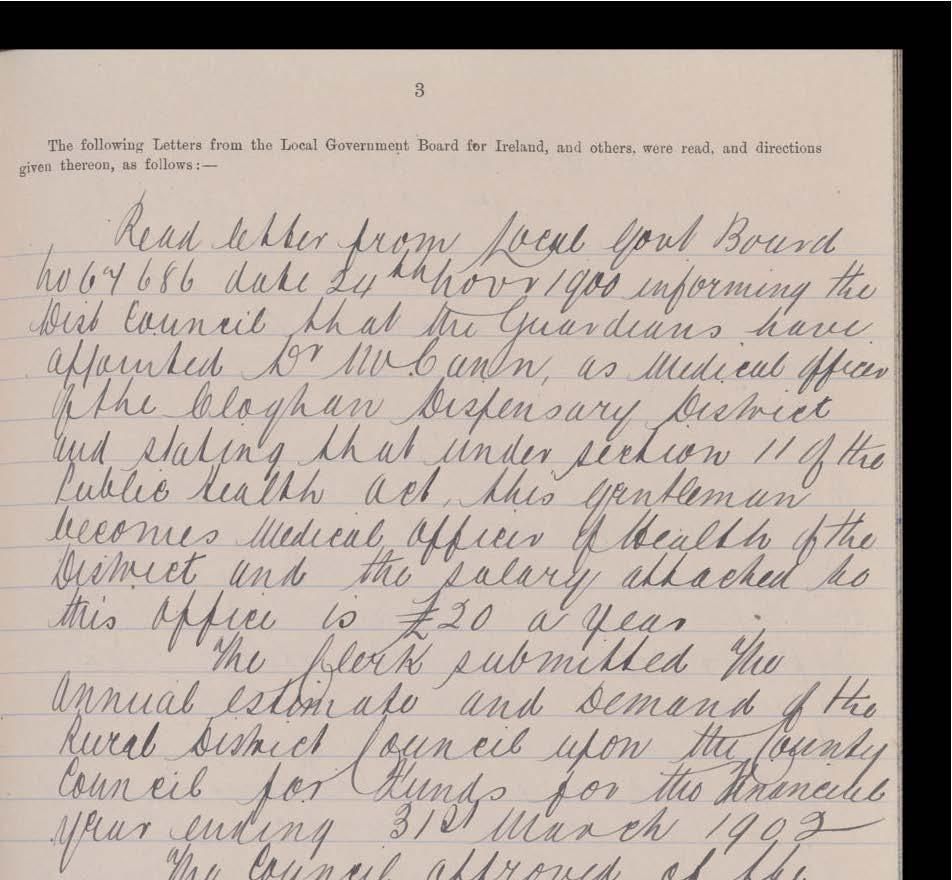 3
The following Letters from the Local Government Board for Ireland, and others, were read, and directions
given thereon, as follows:—
Read letter from Local Govt Board
no 67686 date 24th Novr 1900 informing the
Dist Council that the Guardians have
appointed Dr McCann, as Medical Officer
of the Cloghan Dispensary District
and stating that under section 11 of the
Public Health Act, this gentleman
becomes Medical Officer of Health of the
District and the salary attached to
this office is £20 a year
The Clerk submitted The
Annual estimate and Demand of the
Rural District Council upon the County
Council for Funds for the Financial
year ending 31st March 1902
The Council approved of the